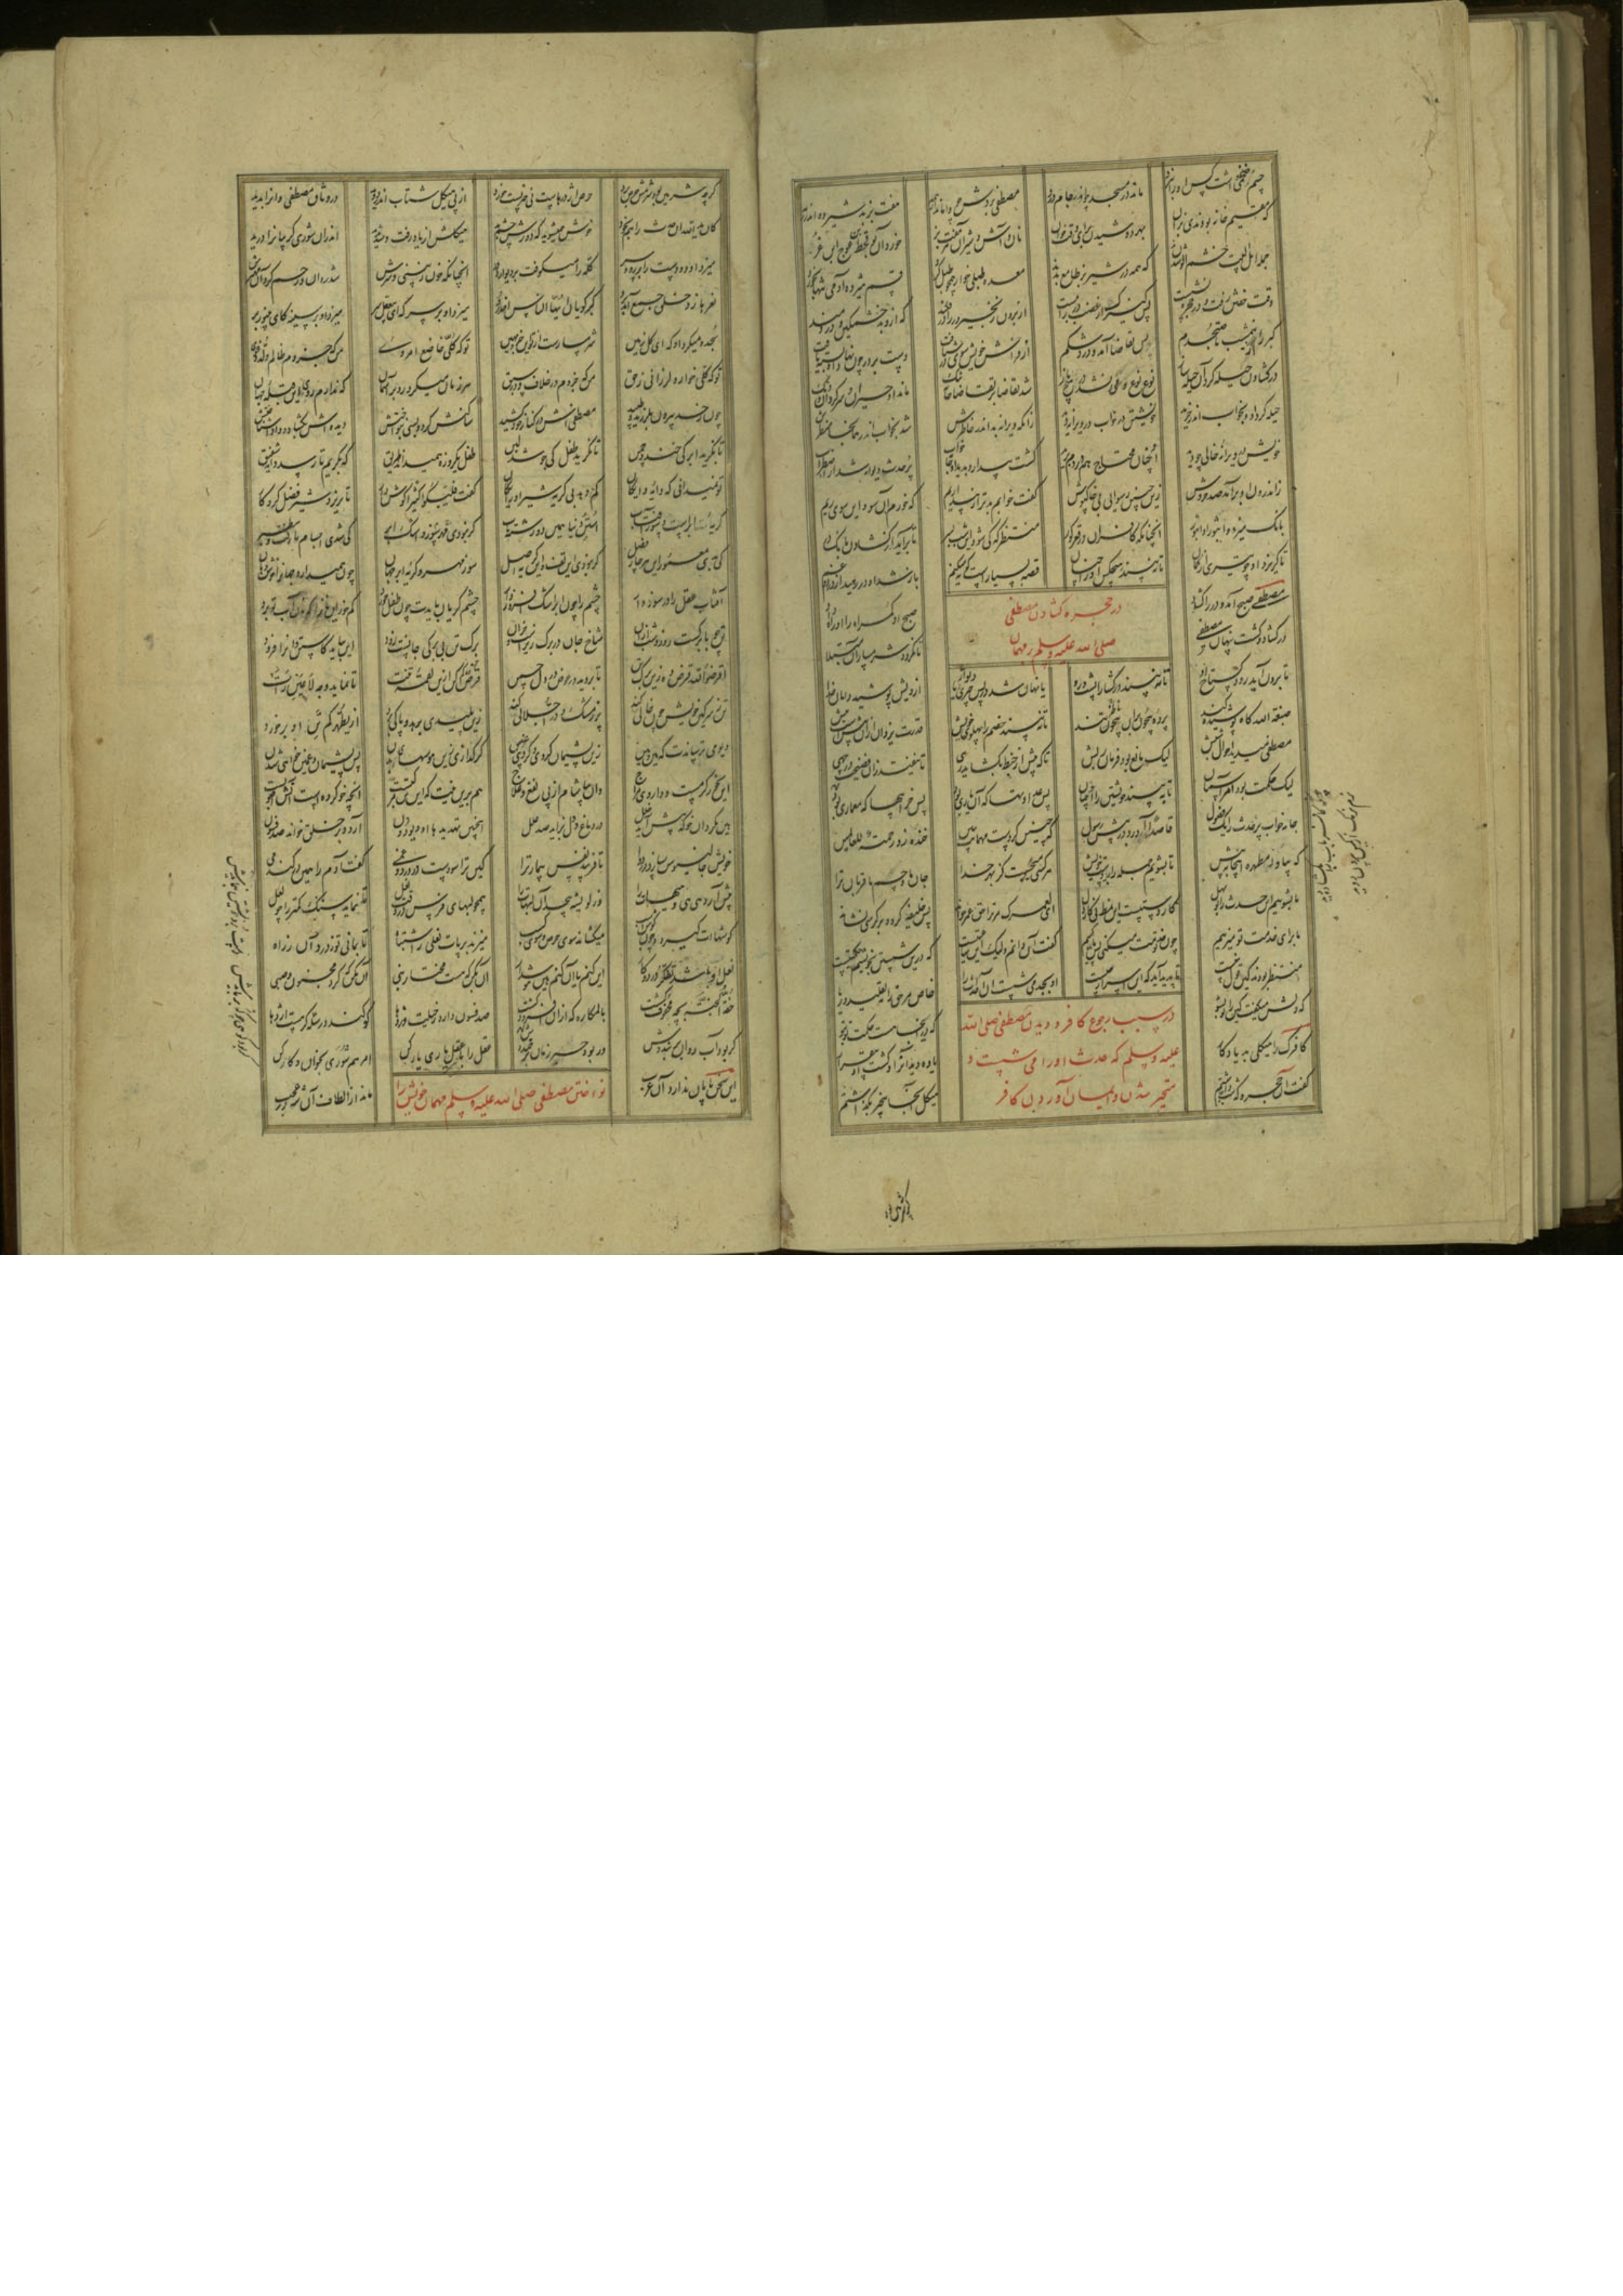 جسم ضخمی داشت کس او را نبرد ماند در مسجد چو اندر جام درد مصطفی بردش چو واماند از همه هفت بز بد شیرده اندر رمه
که مقیم خانه بودندی بزان بهر دوشیدن برای وقت خوان نان و آش و شیر آن هر هفت بز خورد آن بوقحط عوج ابن غز
جمله اهل بیت خشم آلو شدند که همه در شیر بز طامع بدند معده طبلی خوار همچو طبل کرد قسم هژده آدمی تنها بخورد
وقت خفتن رفت و در حجره نشست پس کنیزک از غضب در را ببست از برون زنجیر در را در فکند که ازو بد خشمکین و دردمند
کبر را از نیم شب تا صبحدم پس تقاضا آمد و درد شکم از فراش خویش سوی در شتافت دست بر در چون نهاد او بسته یافت
در کشادن حیله کرد آن حیله ساز نوع نوع و خود نشد آن بند باز شد تقاضا بر تقاضا خانه تنک ماند او حیران و سرکردان و دنک
حیله کرد او و بخواب اندر خزید خویشتن در خواب در ویرانه دید زانکه ویرانه بد اندر خاطرش شد بخواب اندر همانجا منظرش
خویش در ویرانهٔ خالی چو دید او چنان محتاج هم در دم برید کشت بیدار و بدید او جامه خواب پر حدث دیوانه شد از اضطراب
ز اندرون او برآمد صد خروش زین چنین رسوایی بی خاکپوش کفت خوابم بدتر از بیداریم که خورم آن سو و این سو می ریم
بانک میزد وا ثبورا وا ثبور آنچنانکه کافران در قعر کور منتظر که کی شود این شب بسر تا برآید از کشادن بانک در
تا کریزد او چو تیری از کمان تا نبیند هیچکس او را چنان قصه بسیارست کوته میکنم باز شد آن در رهید از درد و غم
در حجره کشادن مصطفی
صلی الله علیه و سلم بر مهمان
مصطفی صبح آمد و در را کشاد صبح او کمراه را او راه داد
در کشاد و کشت پنهان مصطفی تا نکردد شرمسار آن مبتلا
تا برون آید رود کستاخ او تا نبیند درکشا را پشت و رو یا نهان شد در پس چیزی و یا از ویش پوشید دامان خدا
صبغة الله کاه پوشیده کند پرده بیچون بر آن ناظر تند تا نبیند خصم را پهلوی خویش قدرت یزدان از آن بیشست بیش
مصطفی میدید احوال شبش لیک مانع بود فرمان ربش تا که پیش از خبط بکشاید رهی تا نیفتد زان فضیحت در چهی
لیک حکمت بود و امر آسمان تا ببیند خویشتن را او چنان بس عداوتها که آن یاری بود بس خرابیها که معماری بود
جامه خواب پر حدث را یک فضول قاصدا آورد در پیش رسول که چنین کردست مهمانت ببین خنده زد رحمة للعالمین
که بیاور مطهره اینجا به پیش تا بشویم جمله را با دست خویش هر کسی می جست کز بهر خدا جان ما و جسم ما قربان ترا
ما بشوییم این حدث را تو بهل کار دستست این نمط نی کار دل ای لعمرک مر ترا حق عمر خواند پس خلیفه کرد و بر کرسی نشاند
ما برای خدمت تو میزییم چون تو خدمت میکنی پس ما کییم کفت آن دانم ولیک این ساعتیست که درین شستن بخویشم حکمتیست
منتظر بودند کین قول نبیست تا پدید آید که این اسرار چیست او بجد می شست آن احداث را خاص ز امر حق نه تقلید و ریا
که دلش میکفت کین را تو بشو که درینجا هست حکمت تو بتو
در سبب رجوع کافر و دیدن مصطفی صلی الله
علیه وسلم که حدث او را می شست و
متحیر شدن و ایمان آوردن کافر
کافرک را هیکلی بد یادکار یاوه دید آنرا و کشت او بی قرار
کفت آن حجره که شب جا داشتم هیکل آنجا بی خبر بکذاشتم
کرچه شرمین بود شرمش حرص برد حرص اژدرهاست نی چیزیست خرد از پی هیکل شتاب اندر دوید در وثاق مصطفی و آنرا بدید
کان یدالله آن حدث را هم بخود خوش همی شوید که دورش چشم بد هیکلش از یاد رفت و شد پدید اندر آن شوری کریبانرا درید
میزد او دو دست را بر رو و سر کله را میکوفت بر دیوار و در آنچنانکه خون ز بینی و سرش شد روان و رحم کرد آن مهترش
نعرها زد خلق جمع آمد برو کبر کویان ایها الناس احذروا میزد او بر سر که ای بی عقل سر میزد او بر سینه کای بی نور بر
سجده میکرد او که ای کل زمین شرمسارست از تو این جزو مهین تو که کلی خاضع امر ویی من که جزوم ظالم و زشت و غوی
تو که کلی خوار و لرزانی ز حق من که جزوم در خلاف و در سبق هر زمان میکرد رو بر آسمان که ندارم روی ای قبله جهان
چون ز حد بیرون بلرزید و طپید مصطفی اش در کنار خود کشید ساکنش کرد و بسی بنواختش دیده اش بکشاد و داد اشناختش
تا نکرید ابر کی خندد چمن تا نکرید طفل کی جوشد لبن طفل یکروزه همی داند طریق که بکریم تا رسد دایه شفیق
تو نمیدانی که دایه دایکان کم دهد بی کریه شیر او رایکان کفت فلیبکوا کثیرا کوش دار تا بریزد شیر فضل کردکار
کریه ابرست و سوز آفتاب استن دنیا همین دو رشته تاب کر نبودی سوز مهر و اشک ابر کی شدی اجسام ما زفت و سطبر
کی بدی معمور این هر چار فصل کر نبودی این تف و این کریه اصل سوز مهر و کریه ابر جهان چون همی دارد جهان را خوش دهان
آفتاب عقل را در سوز دار چشم را چون ابر اشک افروز دار چشم کریان بایدت چون طفل خرد کم خور این نان را که نان آب تو برد
تن چو با برکست روز و شب از آن شاخ جان در برک ریزست و خزان برک تن بی برکی جانست زود این بباید کاستن و آنرا فزود
اقرضوا الله قرض ده زین برک تن تا بروید در عوض در دل چمن قرض ده کم کن ازین لقمه تنت تا نماید وجه لا عین رأت
تن ز سرکین خویش چون خالی کند پر ز مشک و در اجلالی کند زین پلیدی برهد و پاکی برد از یطهرکم تن او بر خورد
دیو می ترساندت که هین و هین زین پشیمان کردی و کردی حزین کر کدازی زین هوسها تو بدن بس پشیمان و غمین خواهی شدن
این بخور کرمست و داروی مزاج و آن بیاشام از پی نفع و علاج هم بدین نیت که این تن مرکبست آنچه خو کردست آنش اصوبست
هین مکردان خو که پیش آید خلل در دماغ و دل بزاید صد علل اینچنین تهدیدها آن دیو دون آرد و بر خلق خواند صد فسون
خویش جالینوس سازد در دوا تا فریبد نفس بیمار ترا کین ترا سودست از درد و غمی کفت آدم را همین در کندمی
پیش آرد هیهی و هیهات را وز لویشه پیچد او لبهات را همچو لبهای فرس در وقت نعل تا نماید سنک کمتر را چو لعل
کوشهات کیرد او چون کوش اسب میکشاند سوی حرص و سوی کسب میزند بر پات نعلی ز اشتباه تا بمانی تو ز درد آن ز راه
نعل او هست آن تردد در دو کار این کنم یا آن کنم هین هوش دار آن بکن که هست مختار نبی آن مکن که کرد مجنون و صبی
حفت الجنه بچه محفوف کشت بالمکاره که ازو افزود کشت صد فسون دارد ز حیلت وز دها کو کند در سله کر هست اژدها
کر بود آب روان بربنددش ور بود حبر زمان برخنددش عقل را با عقل یاری یار کن امرهم شوری بخوان و کار کن
نواختن مصطفی صلی الله علیه و سلم مهمان خویش را
این سخن پایان ندارد آن عرب ماند از الطاف آن شه در عجب